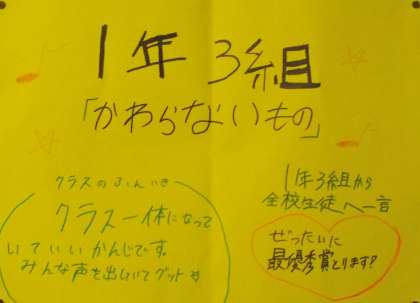 1年3組
「かわらないもの」
クラスのふんいき
クラス一体になって
いていいかんじです。
みんな声を出していてグッド
1年3組から
全校生徒へ一言
ぜったいに
最優秀賞とります!